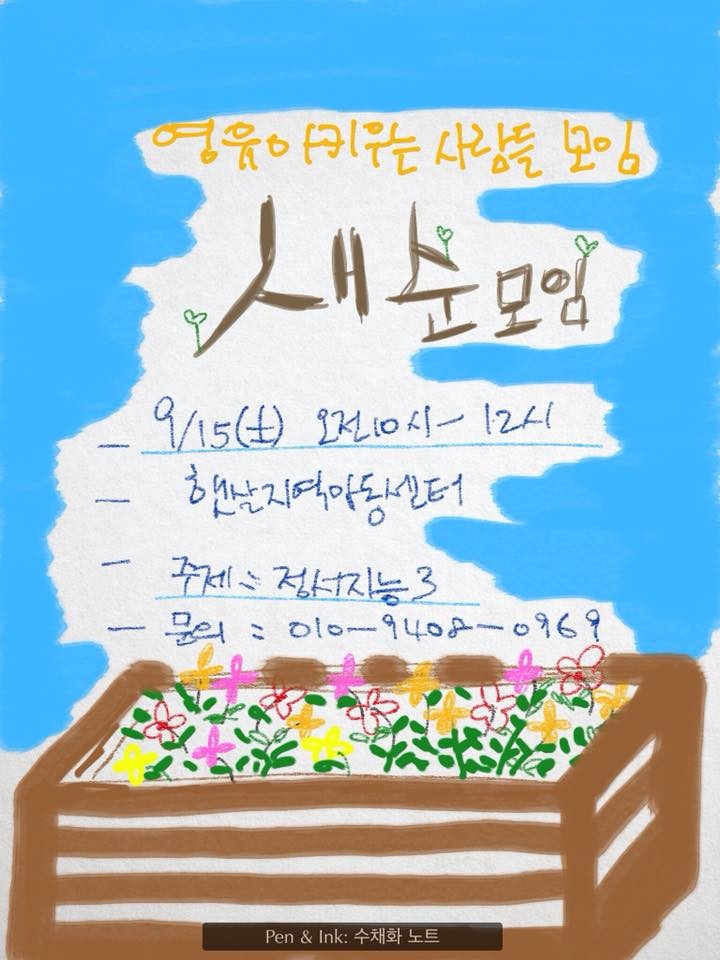 영유아키우는 사람들 모임
새순모임
- 9/15(土) 오전10시- 12시
- 햇살지역아동센터
- 주제 : 정서지능3
- 문의 : 010-9408-0969
Pen & Ink: 수채화 노트